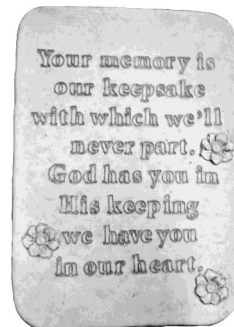 Your memory is
our keepsake
with which we'll
never part.
God has you in
His keeping
we have you
in our heart.